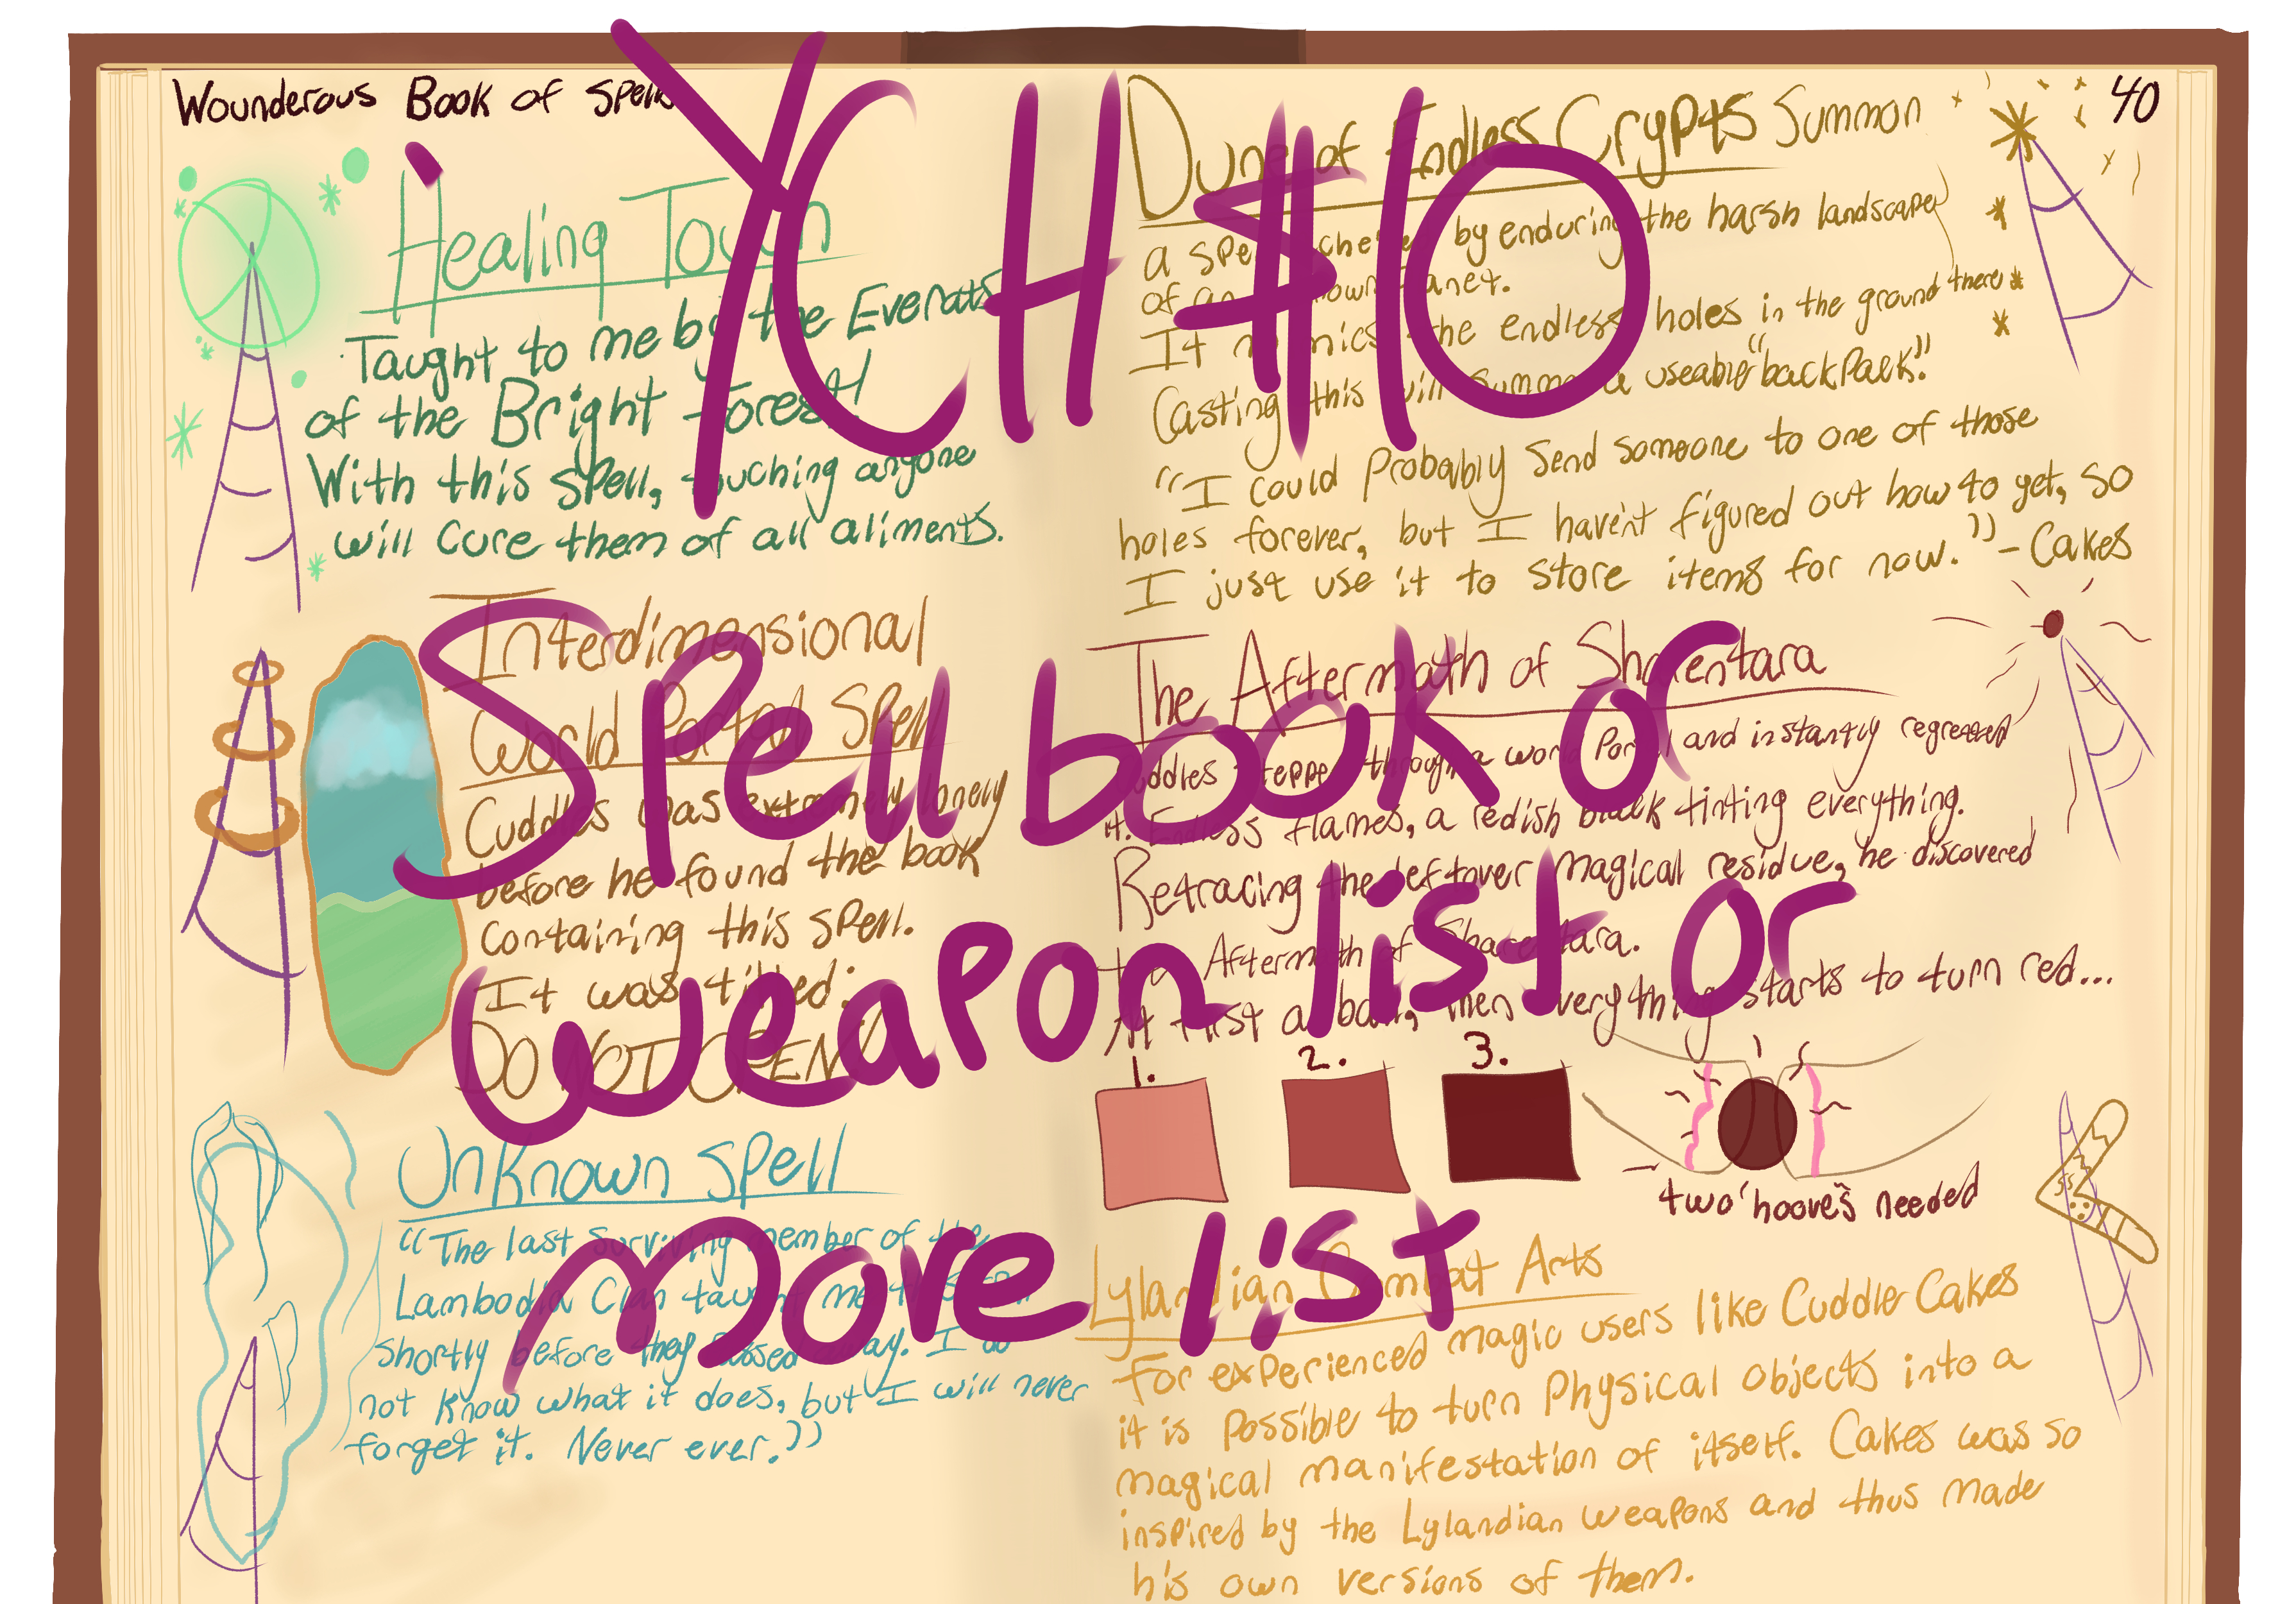 Wounderous Book of Spells
40
YCH $10
Spell book or
weapon list or
move list
Healing Touch
Taught to me by the Everats
of the Bright Forest!
With this spell, touching anyone
will cure them of all aliments.
Interdimensional
World Portal Spell
Cuddles was extremely lonely
before he found the book
containing this spell.
It was titled:
DO NOT OPEN!
Unknown Spell
"The last surviving member of the
Lambodia Clan taught me this
shortly before they passed away. I do
not know what it does, but I will never
forget it. Never ever."
Dune of Endless Crypts Summon
a spell by enduring the harsh landscape
of an planet.
It mimics the endless holes in the ground there
Casting this will summon a useable "backpack".
"I could probably send someone to one of those
holes forever, but I haven't figured out how to yet, so
I just use it to store items for now." - Cakes
The Aftermath of Sharentara
Cuddles stepped through a world portal and instantly regretted
it. Endless flames, a redish black tinting everything.
Retracing the leftover magical residue, he discovered
the Aftermath of Sharentara.
At first a ball, then everything starts to turn red...
1. 2. 3.
two "hooves" needed
Lylandian Combat Arts
For experienced magic users like Cuddle Cakes
it is possible to turn physical objects into a
magical manifestation of itself. Cakes was so
inspired by the Lylandian weapons and thus made
his own versions of them.